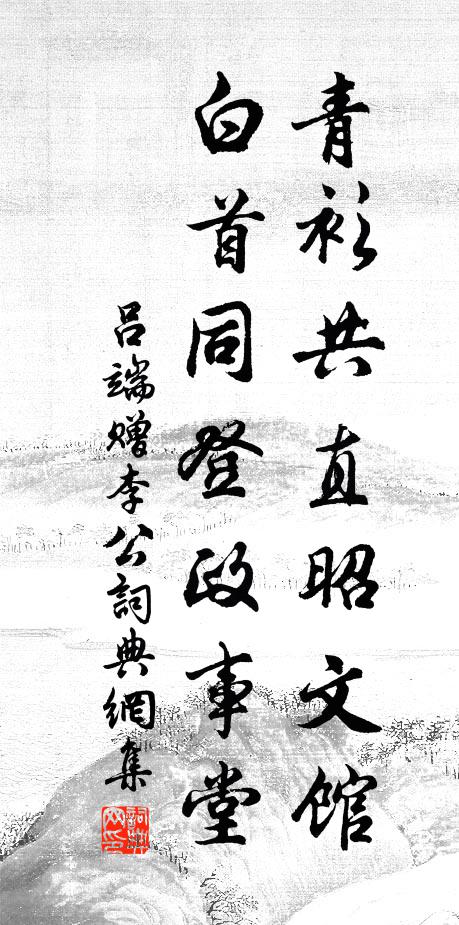 青衫共直昭文馆
白首同登政事堂
吕端赠李公詞典網集